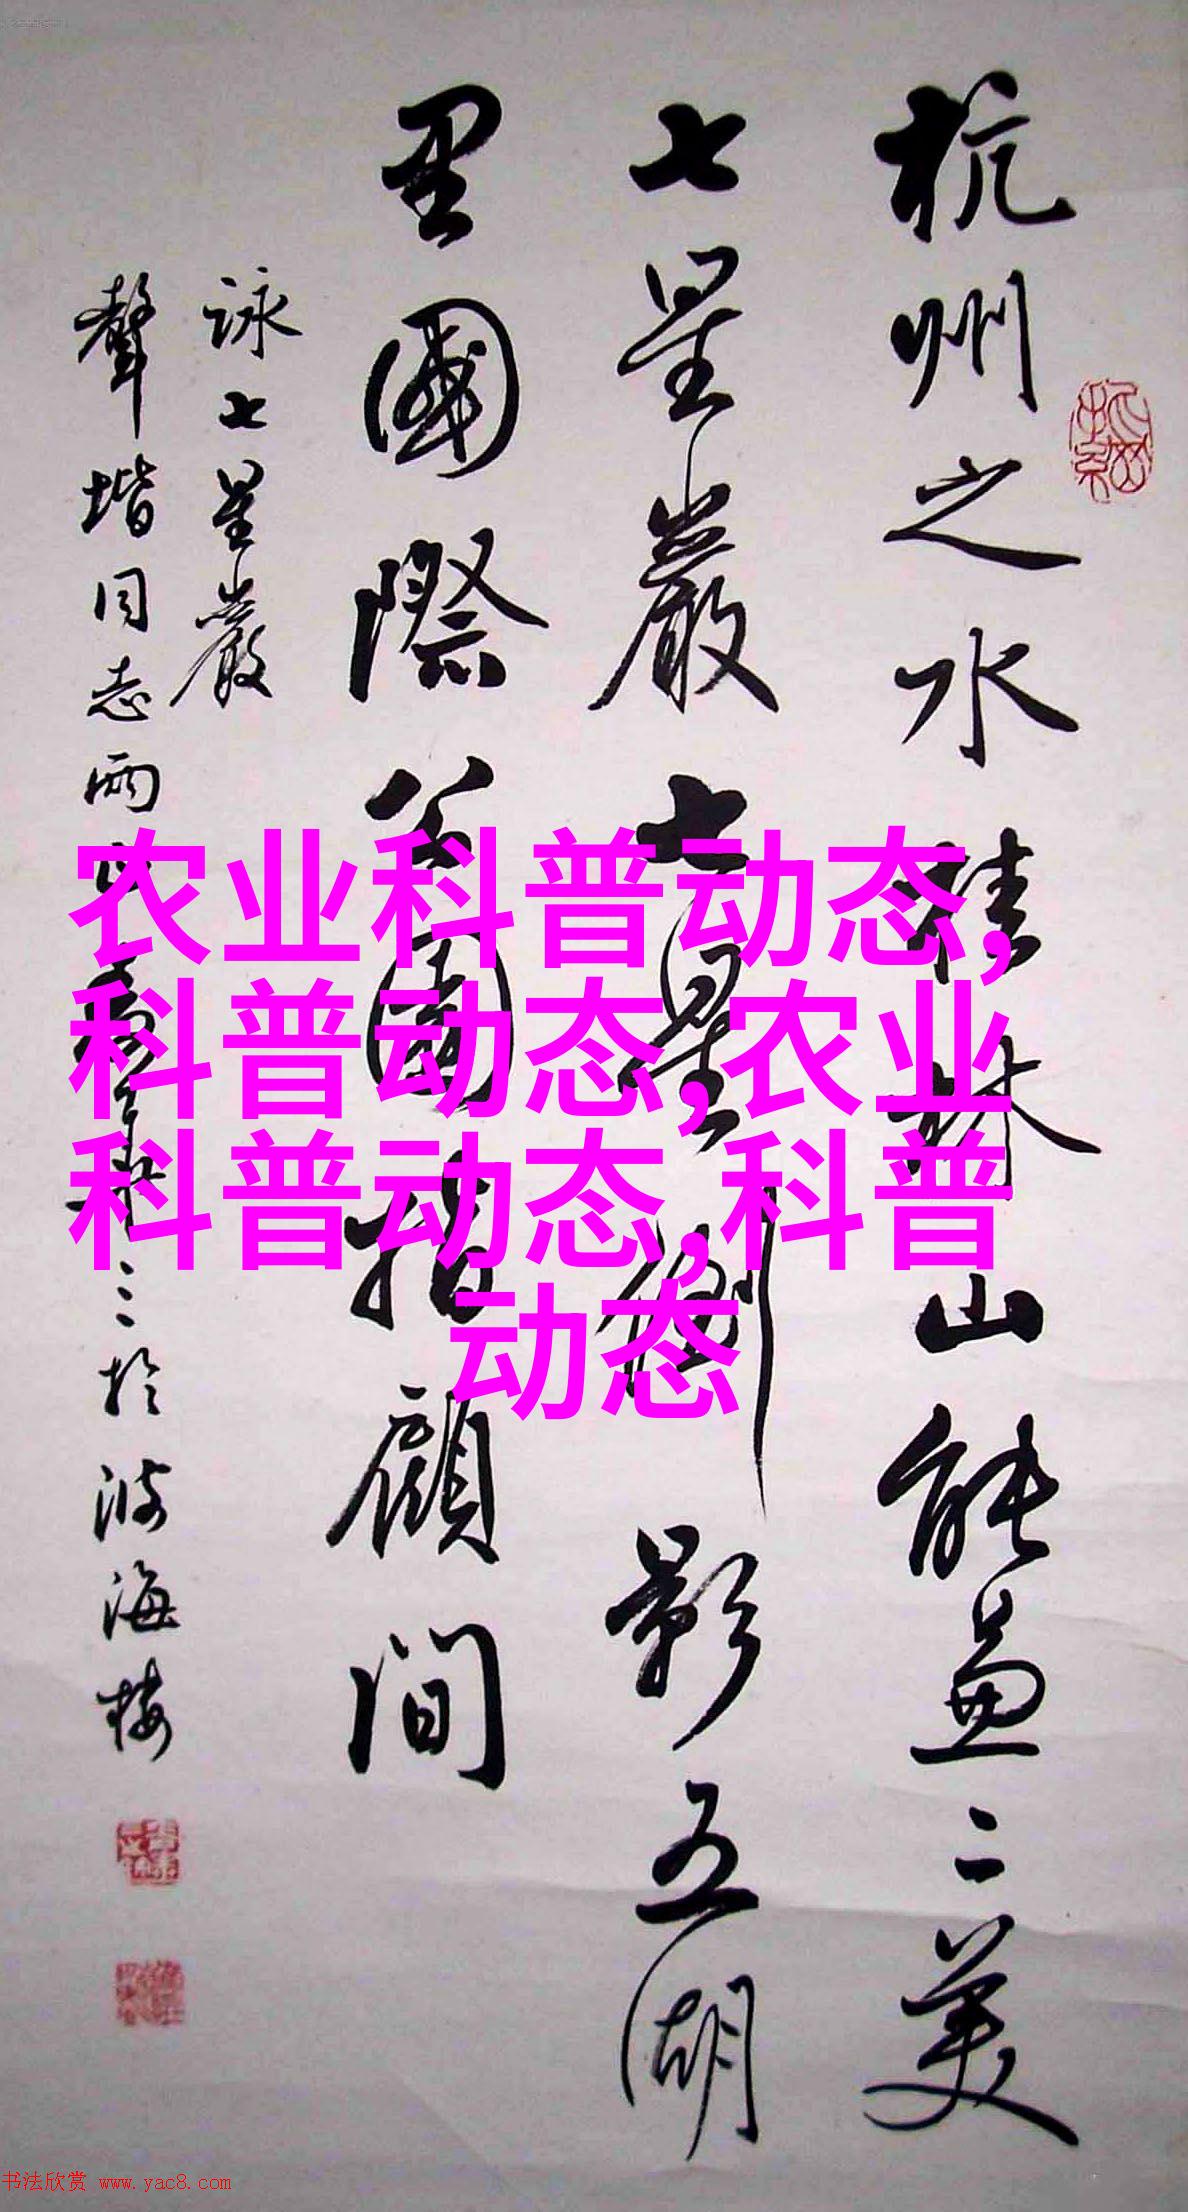 杭州之水桂林山能兼二美
七星巖七星倒影五湖
里國際公園指顧間
詠七星巖
聲堦同志雨
三於波海樓
农业科普动态,
科普动态,农业
科普动态,科普
动态
书法欣赏 www.yac8.com